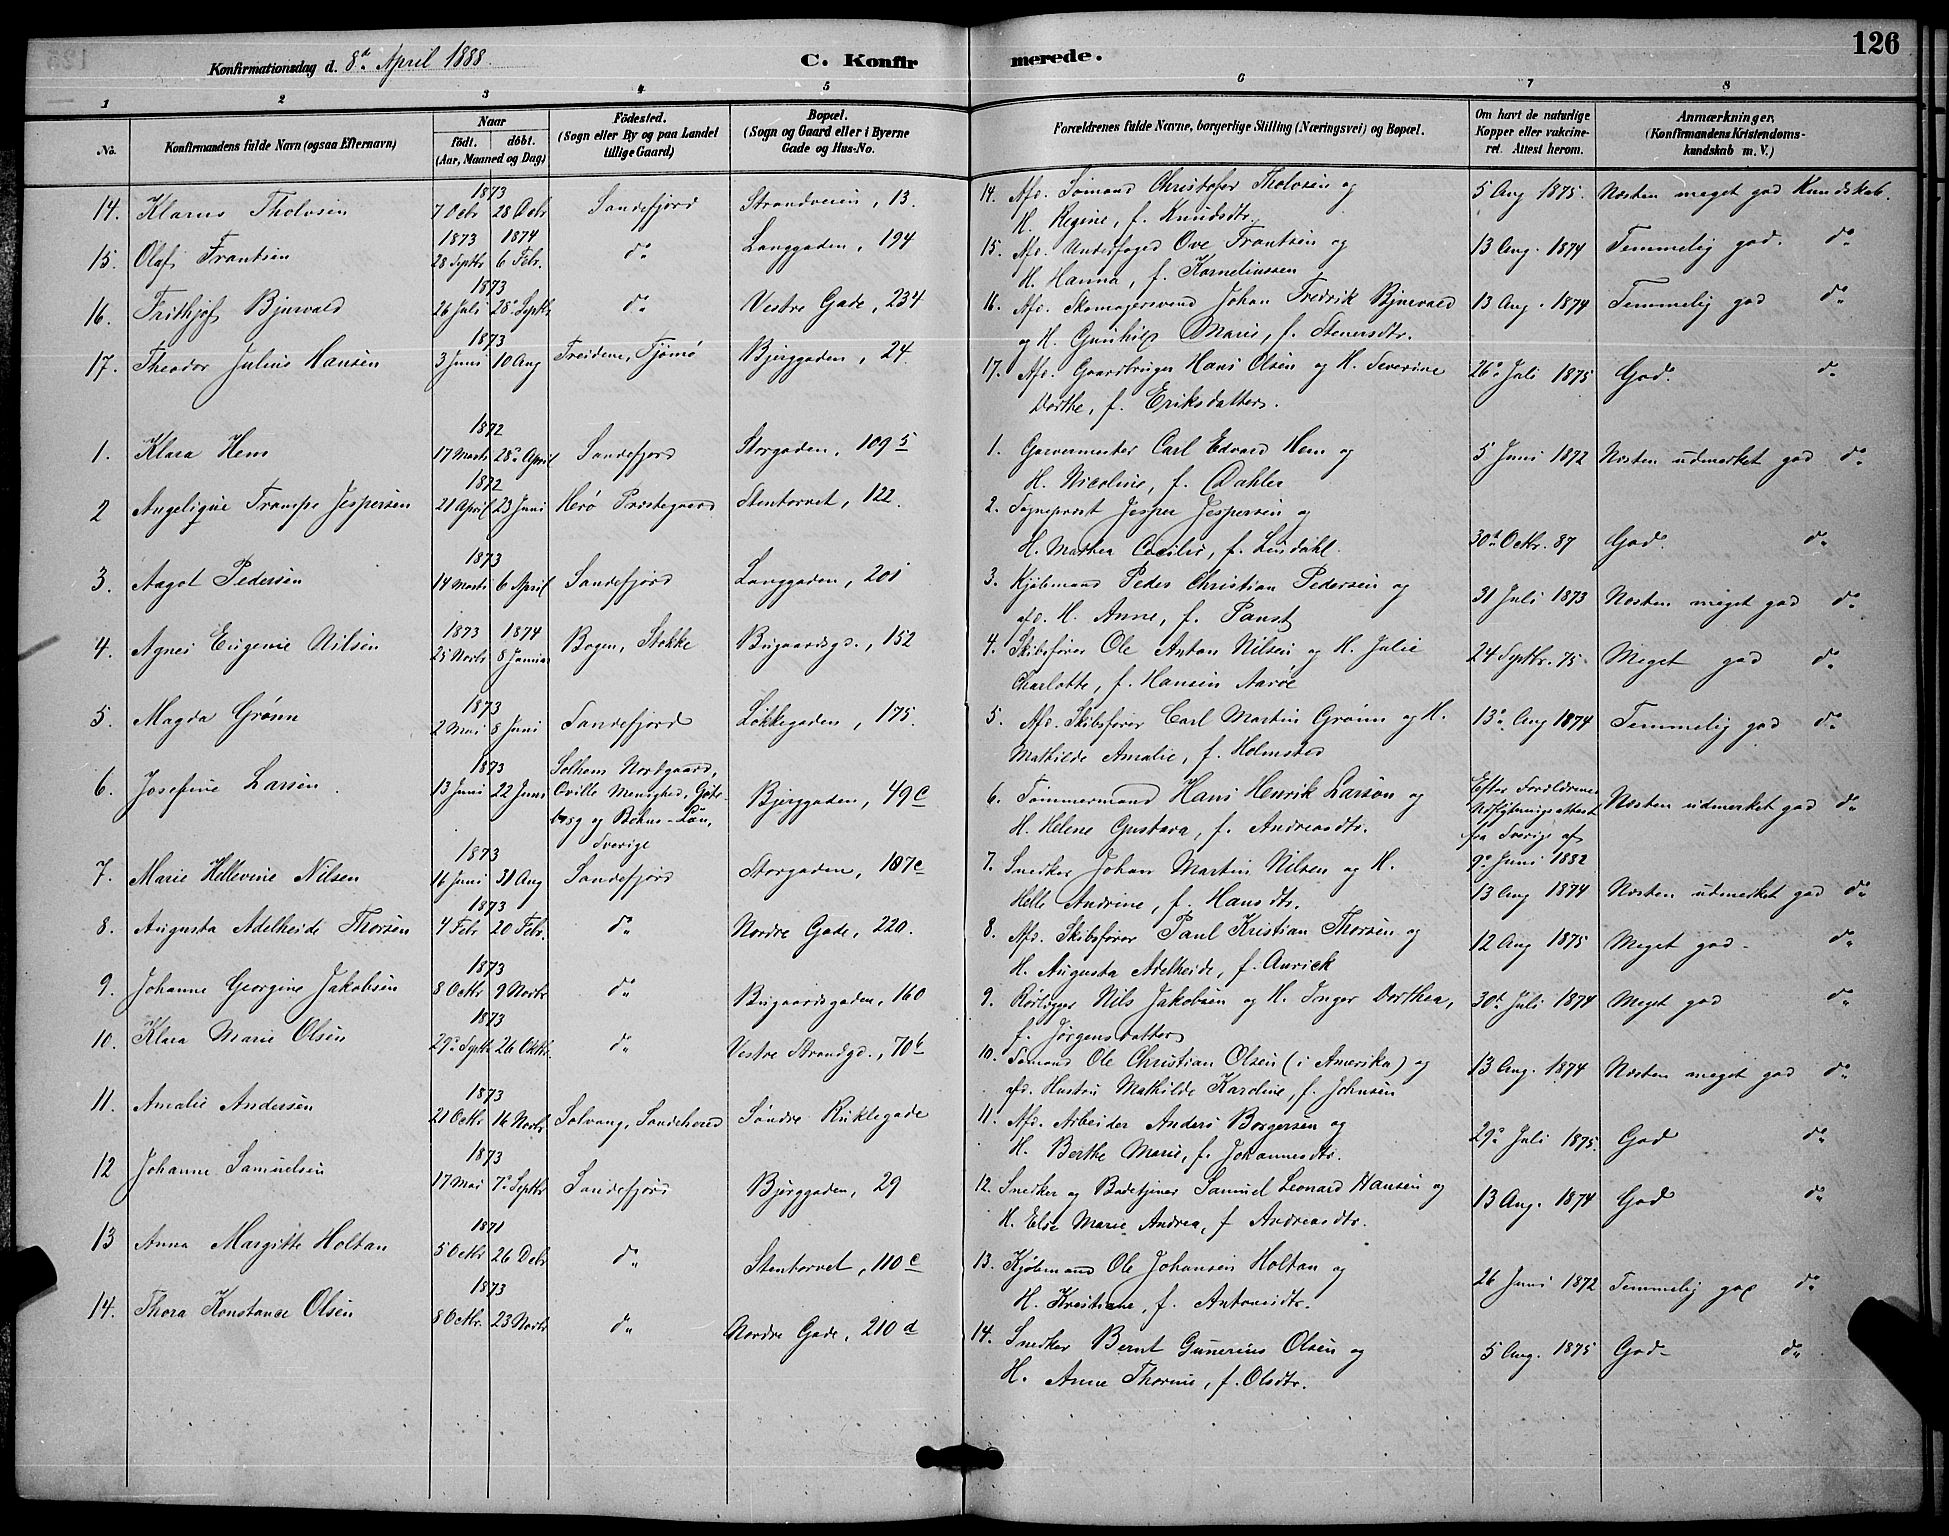 126
Konfirmationsdag d. 8de April 1888. C. Konfirmerede.
1 2 3 4 5 6 7 8
No. Konfirmandens fulde Navn (ogsaa Efternavn) Naar født. døbt. (Aar, Maaned og Dag) Födested. (Sogn eller By og paa Landet tillige Gaard) Bopæl. (Sogn og Gaard eller i Byerne Gade og Hus-No. Forældrenes fulde Navne, borgerlige Stilling (Næringsvei) og Bopæl. Om havt de naturlige Kopper eller vakcineret. Attest herom. Anmærkninger. (Konfirmandens Kristendomskundskab m. V.)
14. Klarus Tholvsen 1873 7 Octr 28 Octr Sandefjord Strandveien, 13. 14. Afd. Sømand Christofer Tholvsen og 5 Aug 1875. Næsten meget god Kundskab.
H. Regine, f. Knudsdtr.
15. Olaf Frantsen 1873 28 Septbr 1874 6 Febr. do Langgaden, 194 15. Afd. Underfoged Ove Frantsen og 13 Aug. 1874 Temmelig god. do
H. Hanna, f. Korneliussen
16. Frithjof Bjurvald 1873 26 Juli 28de Septbr do Vestre Gade, 234 16. Afd. Skomagersvend Johan Fredrik Bjurvald 13 Aug. 1874 Temmelig god do
og H. Gunhild Marie, f. Stenersdtr.
17. Theodor Julius Hansen 1873 3 Juni 10 Aug Treidene, Tjømø Bjerggaden, 24 17. Afd. Gaardbruger Hans Olsen og H. Severine 26de Juli 1875 God. do
Dorthe, f. Eriksdatter.
1. Klara Hem 1872 17 Marts 28de April Sandefjord Storgaden, 109 5 1. Garvermester Carl Edvard Hem og 5 Juni 1872 Næsten udmerket god do
H. Nicoline, f. Dahler
2 Angelique Trampe Jespersen 1872 21 April 23 Juni Herø Præstegaard Stentorvet, 122. 2. Sogneprest Jesper Jespersen og
H. Mathea Cecilie, f. Lindahl. 30de Octr. 87 God. do
3. Aagot Pedersen 1873 14 Marts 6 April Sandefjord Langgaden, 201 3. Kjøbmand Peder Christian Pedersen og 31 Juli 1873 Næsten meget god do
afd. H. Anne, f. Faust
4. Agnes Eugenie Nilsen 1873 25 Novbr 1874 8 Januar Bogen, Stokke Bugaardsgd., 152 4. Skibsfører Ole Anton Nilsen og H. Julie 24 Septbr. 75. Meget god do
Charlotte, f. Hansen Aarøe
5. Magda Grønn 1873 2 Mai 8 Juni Sandefjord Løkkegaden, 175. 5. Afd. Skibsfører Carl Martin Grønn og H. 13de Aug 1874 Temmelig god do
Mathilde Amalie, f. Holmsted
6. Josefine Larsen. 1873 13 Juni 22 Juni Solhem Nordgaard, Qville Menighed, Göteborg og Bohus-Län, Sverige Bjerggaden, 49 c 6. Tømmermand Hans Henrik Larson og Efter Forældrenes Udflytningsattest fra Sverige af 9de Juni 1882 Næsten udmerket god do
H. Helene Gustava, f. Andreasdtr.
7. Marie Hellevine Nilsen 1873 16 Juni 31 Aug Sandefjord Storgaden, 107 c 7. Snedker Johan Martin Nilsen og H. 13 Aug 1874 Næsten udmerket god do
Helle Andrine, f. Hansdtr.
8. Augusta Adelheide Thorsen 1873 4 Febr 20 Febr. do Nordre Gade, 220. 8. Afd. Skibsfører Paul Kristian Thorsen og 12 Aug 1875 Meget god do
H. Augusta Adelheide, f. Anrick
9. Johanne Georgine Jakobsen 1873 8 Octbr 9 Novbr do Bugaardsgaden, 160 9. Rørlægger Nils Jakobsen og H. Inger Dorthea, 30te Juli 1874 Meget god do
f. Jørgensdatter
10. Klara Marie Olsen 1873 29de Septbr 26 Oktbr. do Vestre Strandgd., 70 b 10. Sømand Ole Christian Olsen (i Amerika) og 13 Aug. 1874 Næsten meget god do
afd. Hustru Mathilde Karoline, f. Johnsen
11. Amalie Andersen 1873 21 Octbr 16 Novbr Solvang, Sandeherred Søndre Ruklegade 11. Afd. Arbeider Anders Borgersen og 29de Juli 1875. God do
H. Berthe Marie, f. Johannesdtr.
12 Johanne Samuelsen 1873 17 Mai 7de Septbr Sandefjord Bjerggaden, 29 12. Snedker og Badetjener Samuel Leonard Hansen og 13 Aug. 1874 God do
H. Else Marie Andrea, f Andreasdtr.
13 Anna Margitte Holtan 1871 5 Octbr 26 Debr do Stentorvet, 110 c 13. Kjøbmand Ole Johansen Holtan og 26 Juni 1872 Temmelig god do
H. Kristiane, f. Antonsdtr.
14. Thora Konstance Olsen 1873 8 Octbr. 23 Novbr do Nordre Gade, 210 d 14. Snedker Bernt Gunerius Olsen og 5 Aug. 1875 God do
H. Anne Thorine, f. Olsdtr.